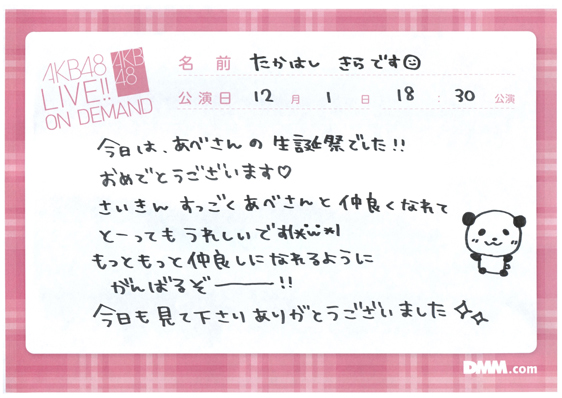 AKB48
LIVE!!
ON DEMAND
AKB
48
名前 たかはし きらです☺
公演日 12月1日 18:30 公演
今日は、あべさんの生誕祭でした!!
おめでとうございます♡
さいきん すっごくあべさんと仲良くなれて
とーってもうれしいです(*¨*)
もっともっと仲良しになれるように
がんばるぞ———!!
今日も見て下さりありがとうございました✧✧
DMM.com